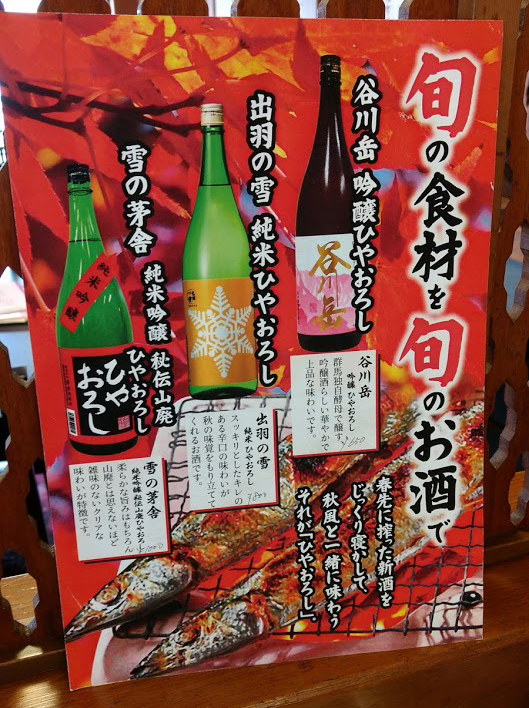 旬の食材を旬のお酒で
谷川岳 吟醸ひやおろし
出羽の雪 純米ひやおろし
雪の茅舎 純米吟醸 秘伝山廃
ひやおろし
谷川岳
純米吟醸
ひや
おろし
谷川岳
吟醸 ひやおろし
群馬独自酵母で醸す。
吟醸酒らしい華やかで
上品な味わいです。
¥650
出羽の雪
純米 ひやおろし
スッキリとしたキレの
ある辛口の味わいが
秋の味覚をもり立てて
くれるお酒です。
¥800
雪の茅舎
純米吟醸 秘伝山廃ひやおろし
柔らかな旨みはもちろん
山廃とは思えないほど
雑味のないクリアな
味わいが特徴です。
¥1000
春先に搾った新酒を
じっくり寝かして
秋風と一緒に味わう
それが「ひやおろし」。